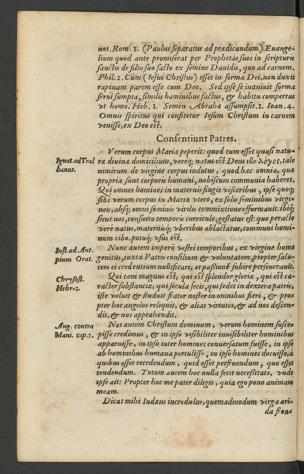 nos. Rom. 1. (Paulus separatus ad prædicandum) Euange-
lium quod ante promiserat per Prophetas suos in scripturis
sanctis de filio suo facto ex semine Dauidis, quo ad carnem.
Phil. 2. Cum (Iesus Christus) esset in forma Dei, non duxit
rapinam parem esse cum Deo, Sed ipse se inaniuit forma
serui sumpta, similis hominibus factus, & habitu compertus
vt homo. Heb. 1. Semen Abrahæ assumpsit. 1. Ioan. 4.
Omnis spiritus qui confitetur Iesum Christum in carnem
venisse, ex Deo est.
Consentiunt Patres.
Verum corpus Maria peperit: quod tum esset quasi natu-
ræ diuinæ domicilium, veroq; natus est Deus ille λόγος, tale
nimirum de virgine corpus indutus, quod hæc omnia, quæ
propria sunt corporis humani, nobiscum communia haberet.
Qui omnes homines in maternis fingit visceribus, ipse quoq;
sibi verum corpus in Matre vero, ex solis feminibus virgi-
neis, absq; omni feminis virilis commixtione efformauit. sibiq;
sicut nos, consueto temporis curriculo, gestatus est: quo peracto
vere natus, maternisq; vberibus ablactatus, communi homi-
num cibo, potuq; vsus est.
Renat. ad Tral
lianos.
Nunc autem imperij vestri temporibus, ex virgine homo
genitus, iuxta Patris consilium & voluntatem, propter salu-
tem ei credentium nullificari, et passione subire perseuerauit.
Iust. ad Ant.
pium Orat.
Qui tam magnus est, qui est splendor gloriæ, qui est ca-
racter substantiæ, qui secula fecit, qui sedet in dextera patris,
iste voluit & studuit frater noster in omnibus fieri, & prop-
ter hoc angelos reliquit, & alias virtutes, & ad nos descen-
dit, & nos apprehendit.
Chrysost.
Hebr. 2.
Nos autem Christum dominum, verum hominem susce-
pisse credimus, & in ipso visibiliter inuisibilem hominibus
apparuisse, in ipso inter homines conuersatum fuisse, in ipso
ab hominibus humana pertulisse, in ipso homines docuisse, à
quibus esset recedendum, quid esset perfruendum, quo esset
tendendum. Totum autem hoc nulla fecit necessitate, vnde
ipse ait: Propter hoc me pater diligit, quia ego pono animam
meam.
Aug. contra
Mani. cap. 2.
Dicat mihi Iudæus incredulus, quemadmodum virga ari-
da flo-